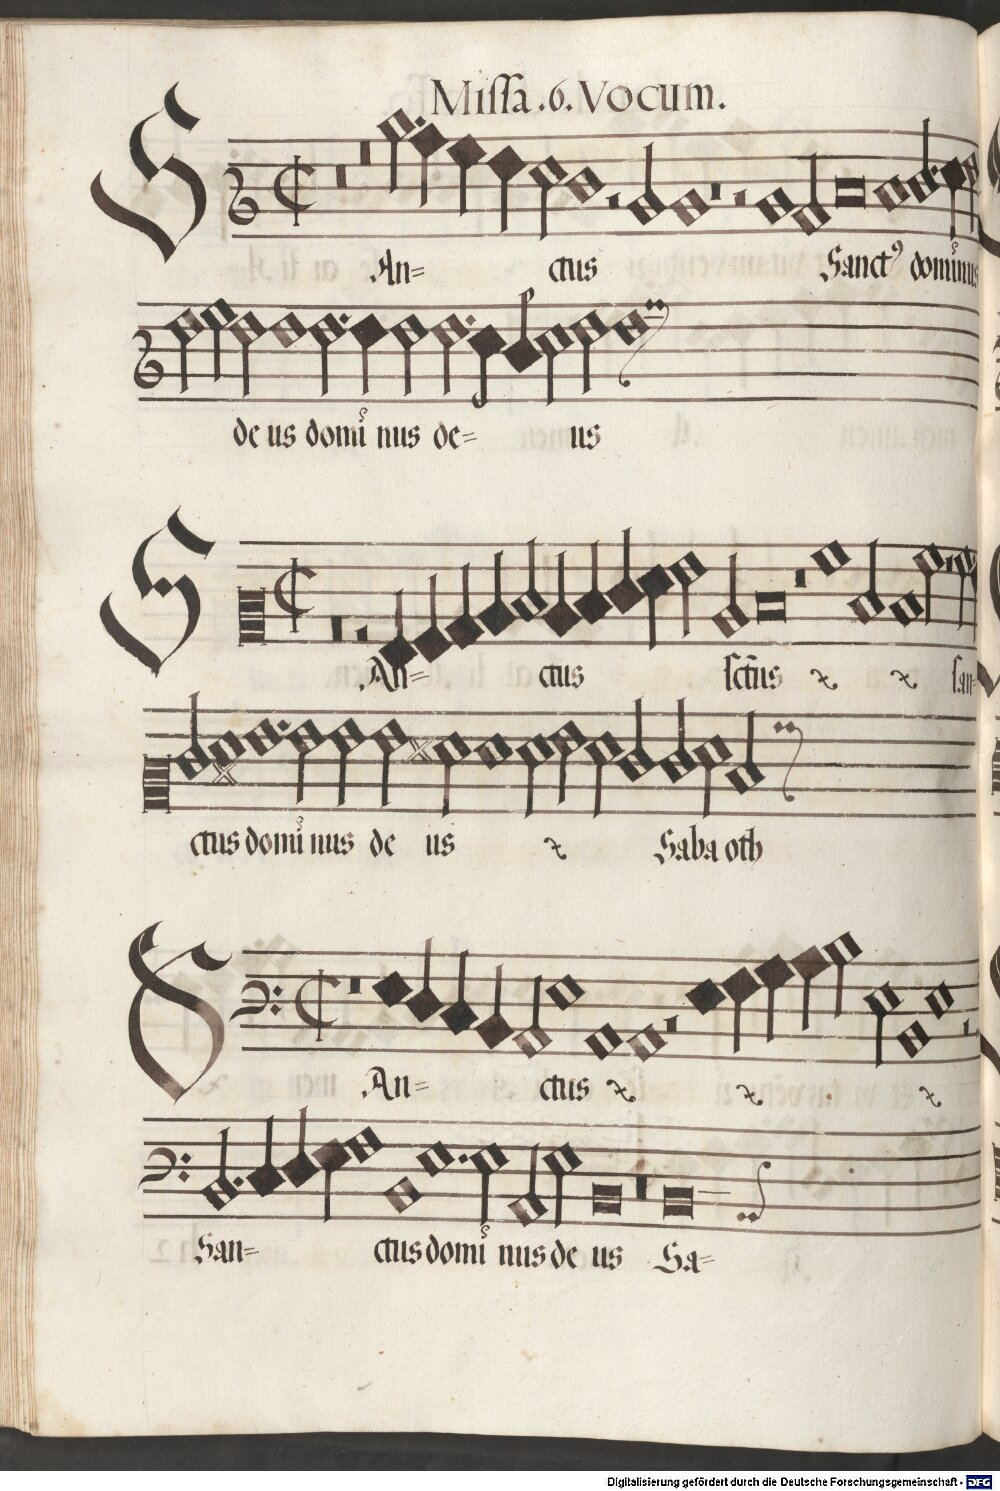 Missa .6. Vocum.
S An= ctus Sanct⁹ dominus
de us domi nus de= us
S An= ctus sctus ⁊ ⁊ san=
ctus domi nus de us ⁊ Saba oth
S An= ctus ⁊ ⁊ ⁊
San= ctus domi nus de us Sa=
Digitalisierung gefördert durch die Deutsche Forschungsgemeinschaft - DFG